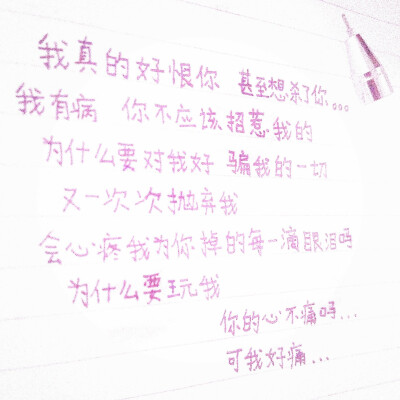 我真的好恨你 甚至想杀了你...
我有病 你不应该招惹我的
为什么要对我好 骗我的一切
又一次次抛弃我
会心疼我为你掉的每一滴眼泪吗
为什么要玩我
你的心不痛吗...
可我好痛...